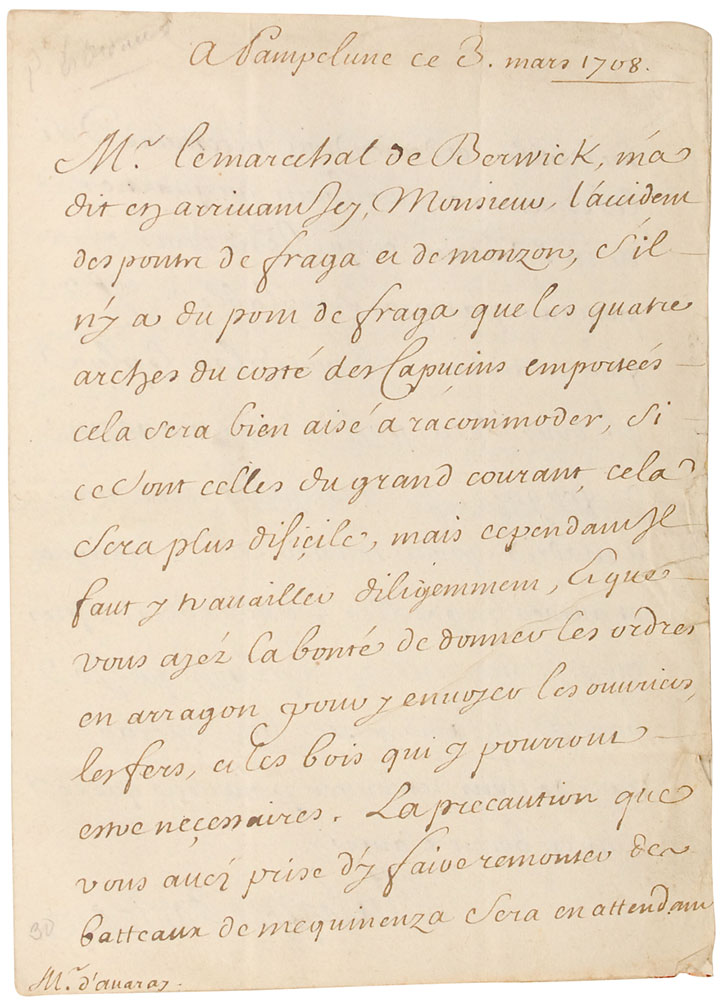 A Pampelune ce 3. mars 1708.
Mr. lemareçhal de Berwick, m'a
dit en arrivant Jcy, Monsieur, l'accident
des ponts de fraga et de monzon, s'il
n'y a du pont de fraga que les quatre
arches du costé des Capuçins emporteés
cela sera bien aisé a racommoder, si
ce sont celles du grand courant, cela
sera plus difiçile, mais cependant Il
faut y travailler diligemment, Et que
vous ayéz la bonté de donner les ordres
en arragon pour y envoyer les ouvriers,
les fers, et les bois qui y pourront
estre neçessaires. La precaution que
vous avéz prise d'y faire remonter des
batteaux de mequinenza sera en attendant
30
Mr. d'avaray.